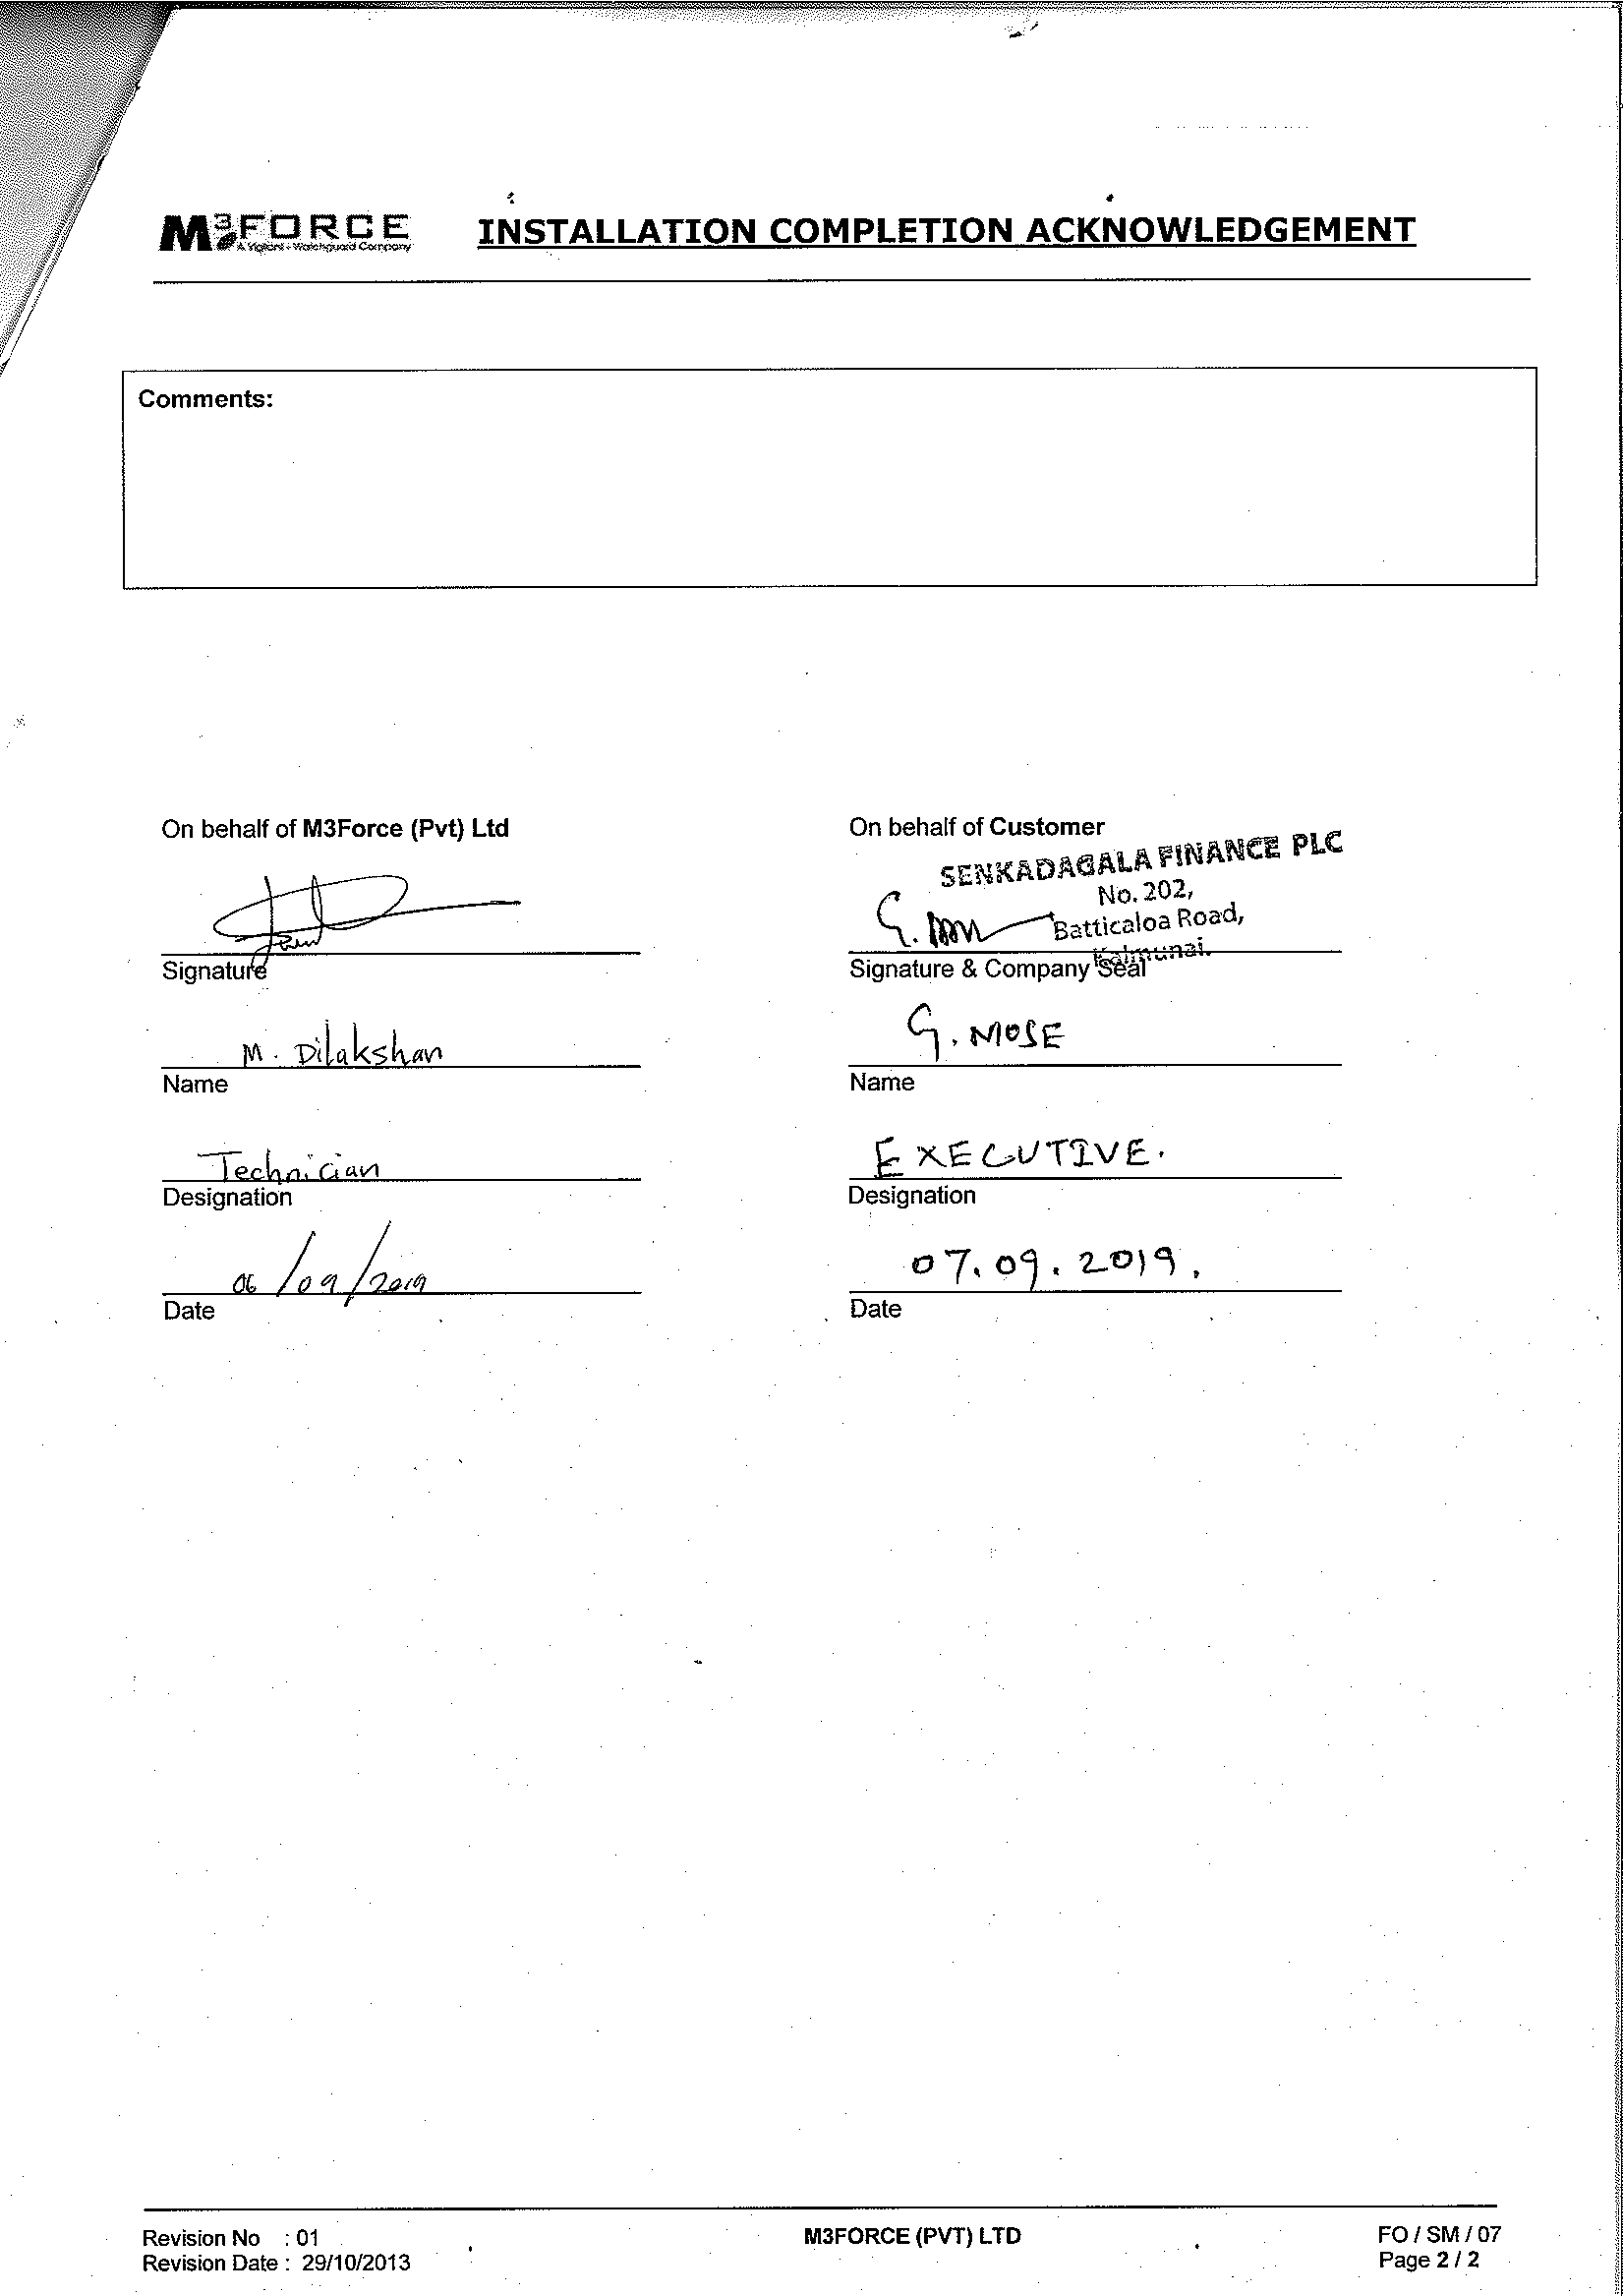 M3FORCE
A Vigilant - Watchguard Company
INSTALLATION COMPLETION ACKNOWLEDGEMENT
Comments:
On behalf of M3Force (Pvt) Ltd
Signature
M. Dilakshan
Name
Technician
Designation
06/09/2019
Date
On behalf of Customer
SENKADAGALA FINANCE PLC
No. 202,
Batticaloa Road,
Kalmunai.
Signature & Company Seal
G. MOSE
Name
EXECUTIVE.
Designation
07.09.2019.
Date
Revision No : 01
Revision Date : 29/10/2013
M3FORCE (PVT) LTD
FO / SM / 07
Page 2 / 2